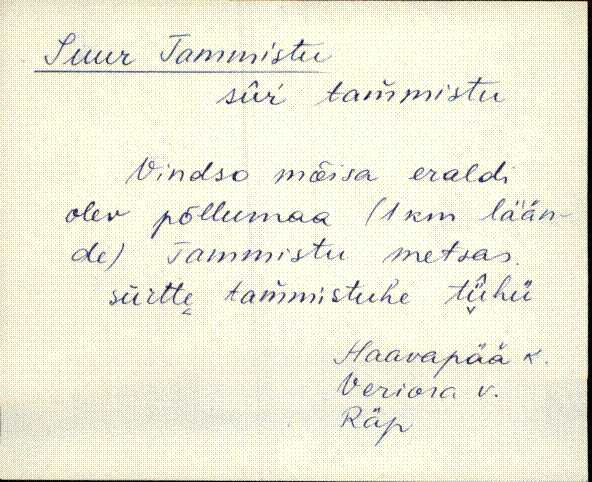 Suur Tammistu
sûr̀ tam̆mistu
Vindso mõisa eraldi
olev põllumaa (1 km lään-
de) Tammistu metsas.
sürtte tam̆mistuhe tühü
Haavapää k.
Veriora v.
Räp